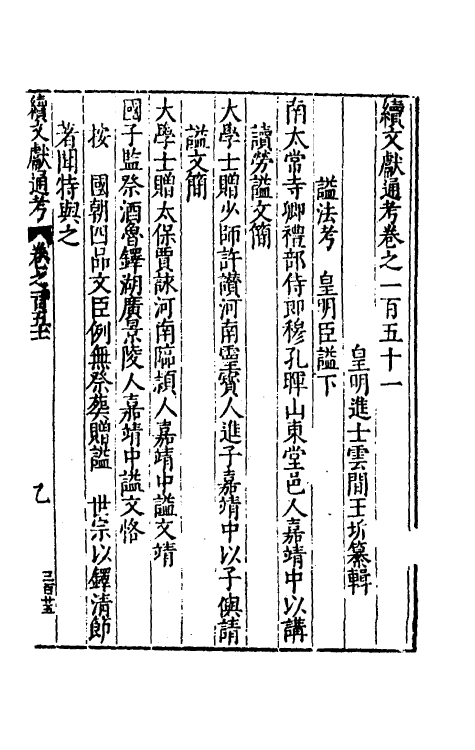 續文獻通考卷之一百五十一
皇明進士雲間王圻纂輯
諡法考　皇明臣諡下
南太常寺卿禮部侍郎穆孔暉山東堂邑人嘉靖中以講
讀勞諡文簡
大學士贈少師許讚河南靈寳人進子嘉靖中以子俁請
諡文簡
大學士贈太保賈詠河南臨潁人嘉靖中諡文靖
國子監祭酒魯鐸湖廣景陵人嘉靖中諡文恪
按　國朝四品文臣例無祭葬贈諡　世宗以鐸清節
著聞特與之
續文獻通考　卷之一百五十一　乙